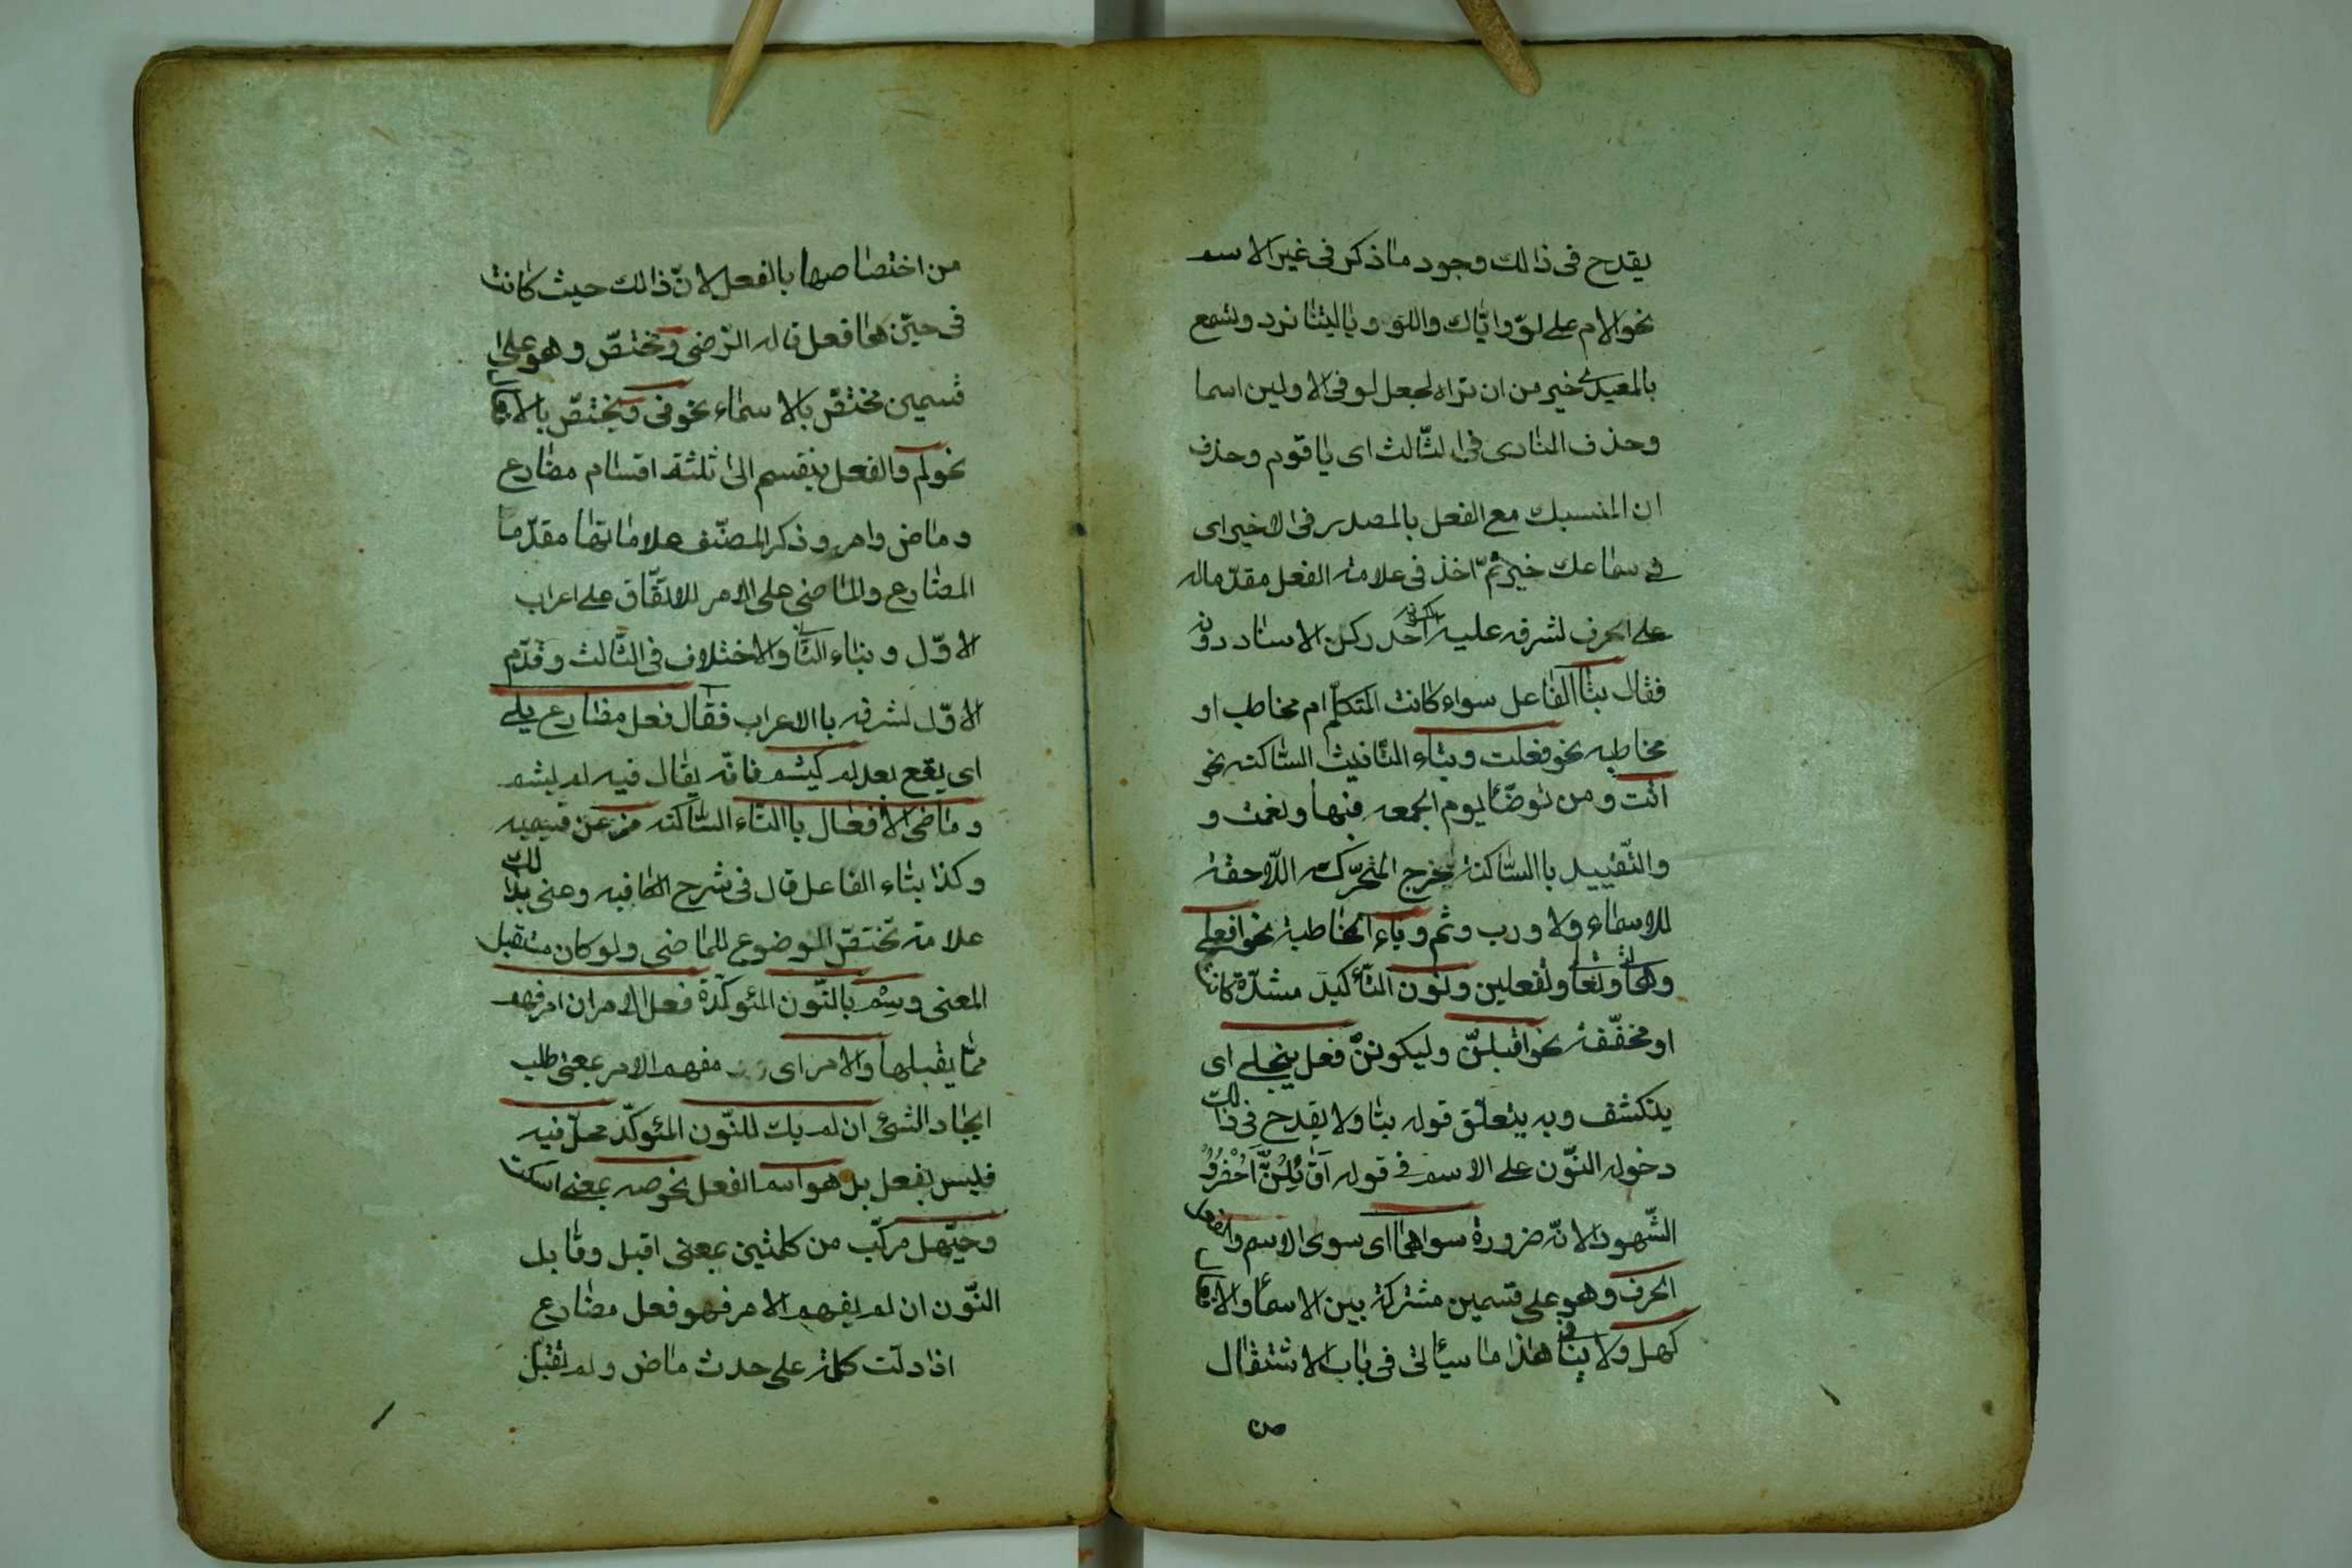 يقدح فى ذالك وجود ما ذكر فى غير الاسم
نحو الام على لوّ واياك واللو ويا ليتنا نرد وتسمع
بالمعيدى خير من ان تراه لجعل لو فى الاولين اسما
وحذف المنادى فى الثّالث اى يا قوم وحذف
ان المنسبك مع الفعل بالمصدر فى الاخير اى
فى سماعك خير ثمّ اخذ فى علامة الفعل مقدّما له
على الحرف لشرفه عليه احد ركن الاسناد دونه
فقال بتا الفاعل سواء كانت المتكلّم ام مخاطب او
مخاطبه نحو فعلت وبتاء التانيث السّاكنه نحو
اتت و من توضّأ يوم الجمعه فبها ونعمت و
والتّقييد باالسّاكنة يخرج المتحرّكه اللّاحقة
للاسماء ولا ورب وثم وياء المخاطبة نحو افعلى
وهاتى وتعالى وتفعلين ونون التّأكيد مشدّدة كانت
او مخفّفة نحو اقبلنّ وليكونن فعل ينجلى اى
ينكشف وبه يتعلّق قوله بتا ولا يقدح فى ذالك
دخول النّون على الاسم فى قوله اَقائِلُنَّ اَحْضُرُوُ
الشّهود الانّه ضرورة سواهما اى سوى الاسم والفعل
الحرف وهو على قسمين مشتركة بين الاسماء والافعال
كهل ولا ينافى هذا ما سيأتى فى باب الاشتغال
من
من اختصاصها بالفعل لانّ ذالك حيث كانت
فى حيّزها فعل قاله الرّضى ومختصّ وهو على
قسمين مختصّ بالاسماء نحو فى ويختصّ بالافعال
نحو لم والفعل ينقسم الى ثلثة اقسام مضارع
وماض وامر وذكر المصنّف علاماتها مقدّما
المضارع والماضى على الامر للاتّفاق على اعراب
الاوّل وبناء الثانى والاختلاف فى الثّالث وقدّم
الاوّل لشرفه باالاعراب فقال فعل مضارع يلى
اى يقع بعد لم كيشم فانّه يقال فيه لم يشم
وماضى الافعال باالتّاء السّاكنه مز عن قسيميه
وكذا بتاء الفاعل قال فى شرح الكافيه وعنى بذالك
علامة تختصّ الموضوع للماضى ولو كان مستقبل
المعنى وسِمْ بالنّون المئوكّدة فعل الامران امر فهم
ممّا يقبلها والامر اى مفهم الامر بمعنى طلب
ايجاد الشئ ان لم يك للنّون المئوكّد محلّ فيه
فليس بفعل بل هو اسم الفعل نحو صه بمعنى اسكت
وحيّهل مركّب من كلمتين بمعنى اقبل وقابل
النّون ان لم يفهم الامر فهو فعل مضارع
اذا دلّت كلمة على حدث ماض ولم تقبل